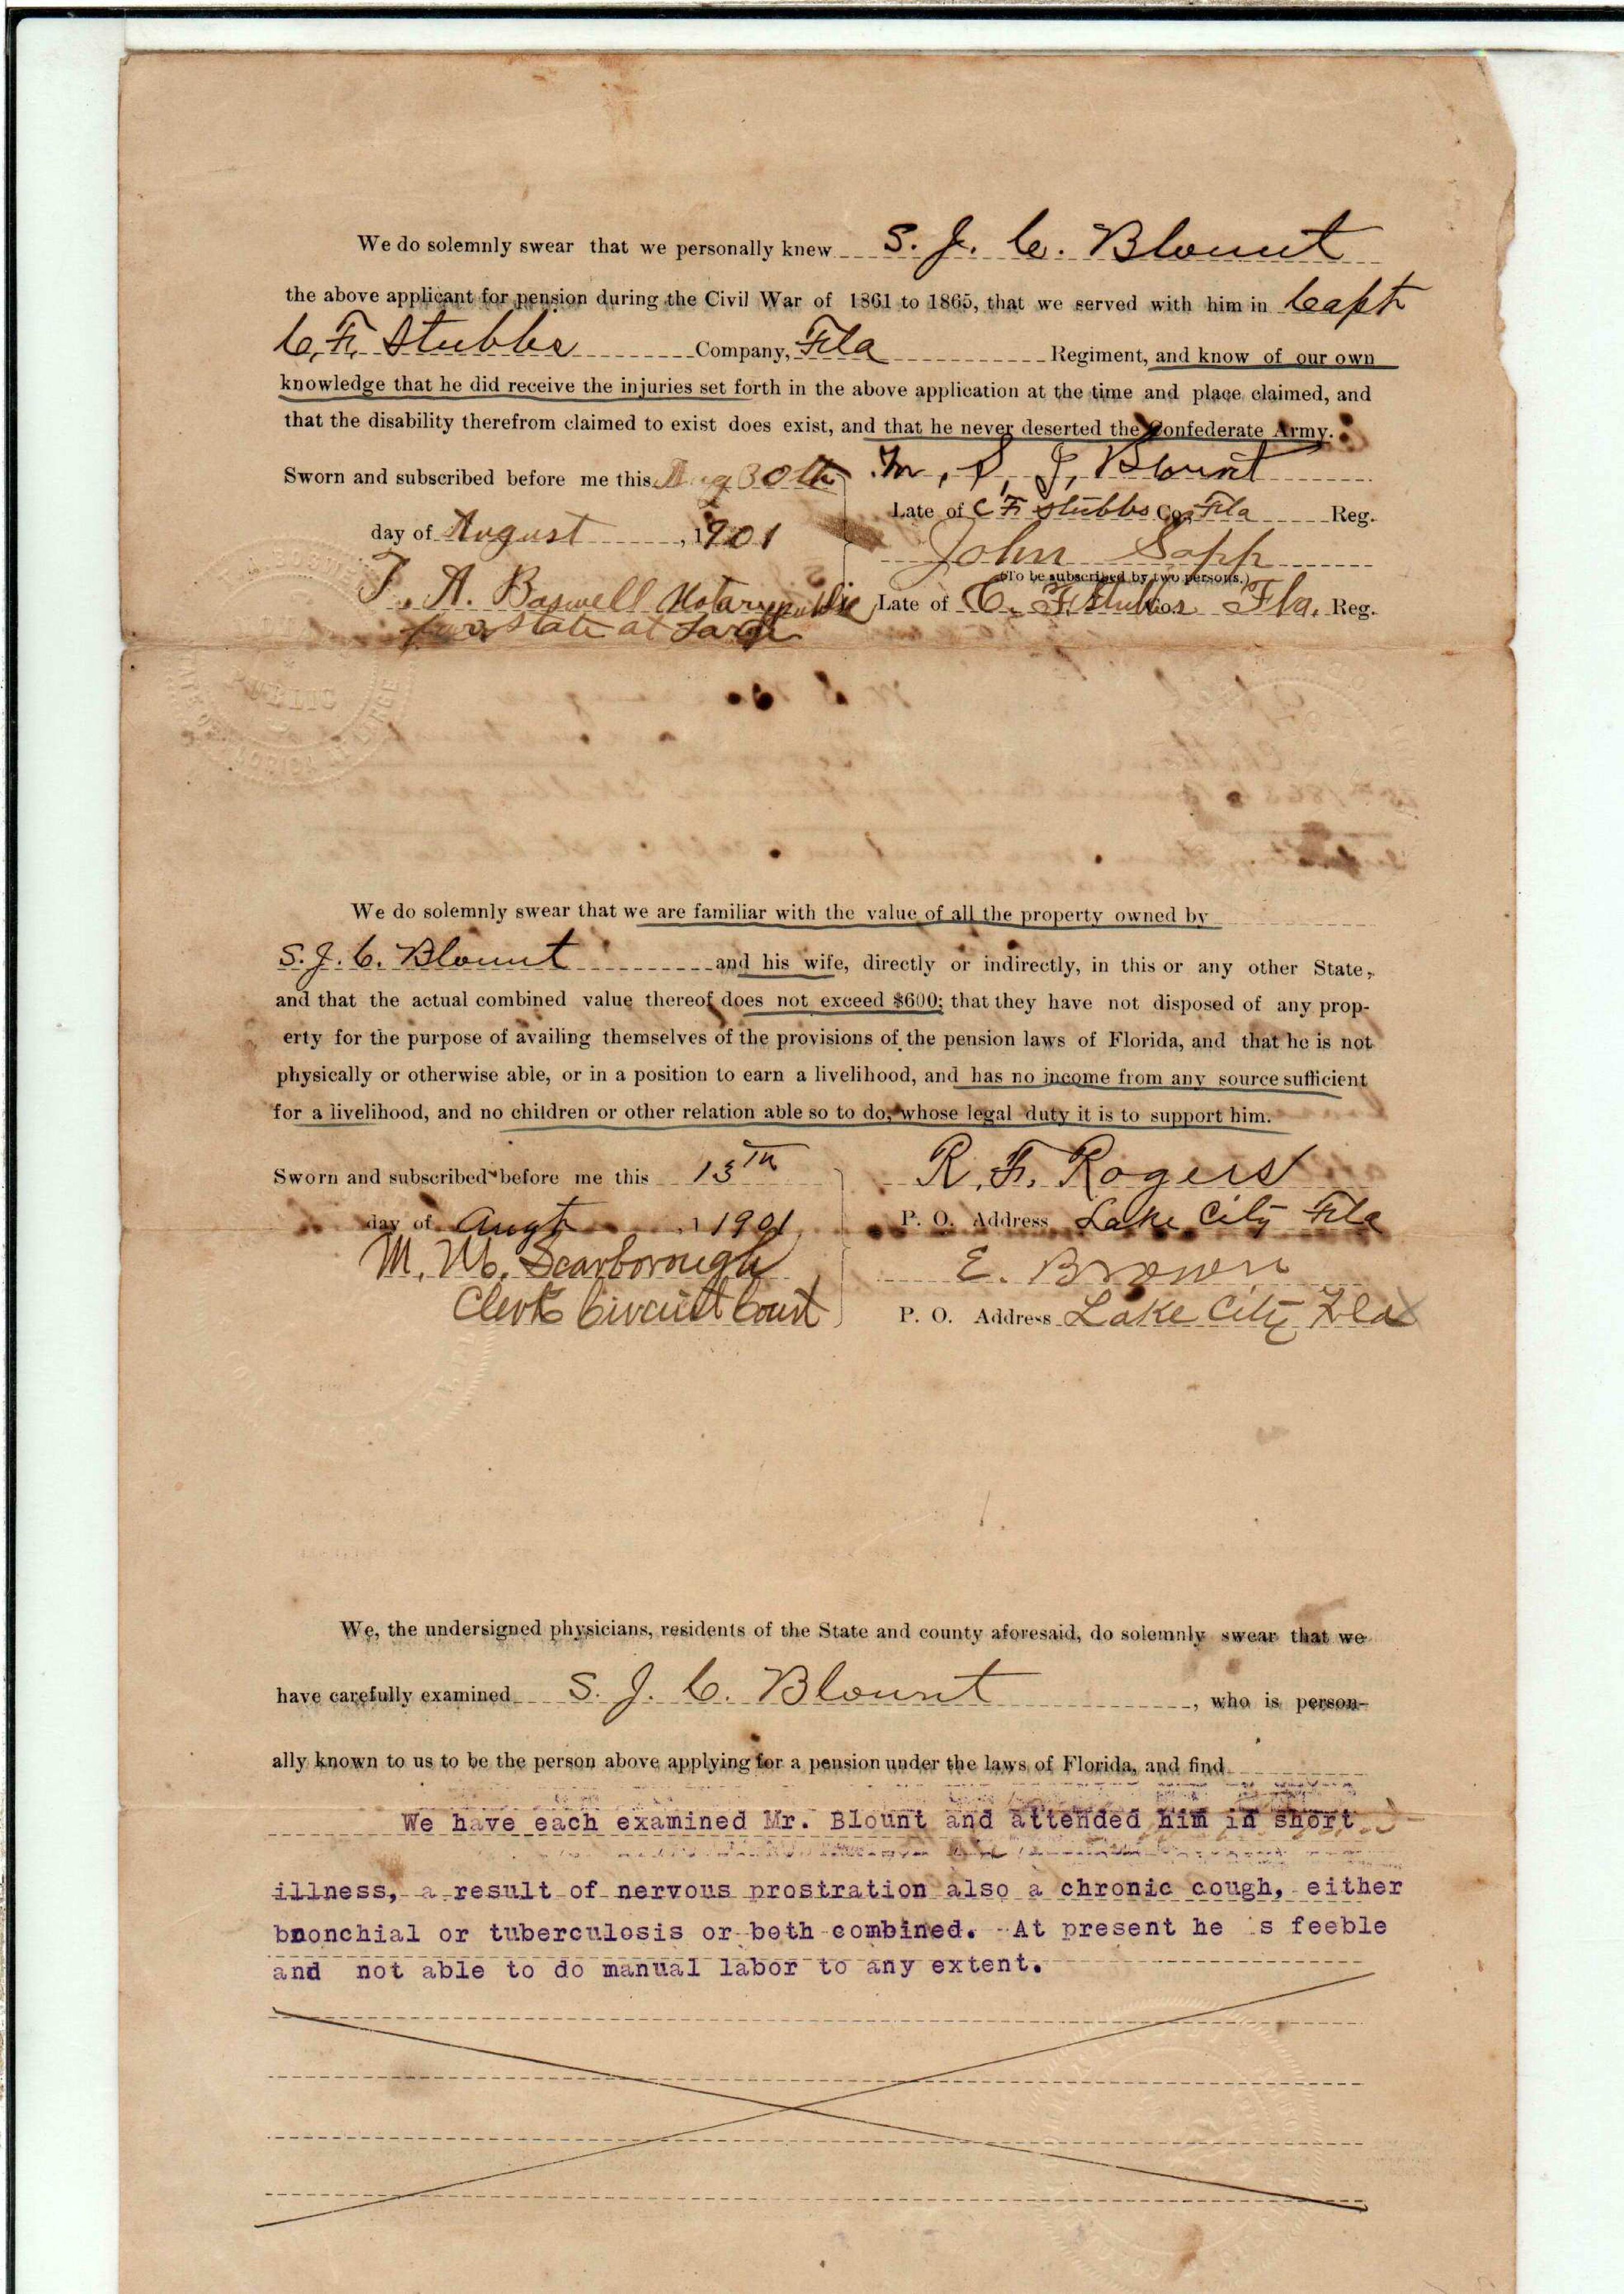 We do solemnly swear that we personally knew S. J. C. Blount
the above applicant for pension during the Civil War of 1861 to 1865, that we served with him in Capt
C. F. Stubbs Company, Fla Regiment, and know of our own
knowledge that he did receive the injuries set forth in the above application at the time and place claimed, and
that the disability therefrom claimed to exist does exist, and that he never deserted the Confederate Army.
Sworn and subscribed before me this Aug 30th M. S. J. Blount
Late of C F Stubbs Co. Fla Reg.
day of August, 1901
John Sapp
(To be subscribed by two persons.)
T. A. Boswell Notary public Late of C. F. Stubbs Co. Fla. Reg.
for State at Large
PUBLIC
We do solemnly swear that we are familiar with the value of all the property owned by
S. J. C. Blount and his wife, directly or indirectly, in this or any other State,
and that the actual combined value thereof does not exceed $600; that they have not disposed of any prop-
erty for the purpose of availing themselves of the provisions of the pension laws of Florida, and that he is not
physically or otherwise able, or in a position to earn a livelihood, and has no income from any source sufficient
for a livelihood, and no children or other relation able so to do, whose legal duty it is to support him.
Sworn and subscribed before me this 13th R. F. Rogers
day of Augt, 1901 P. O. Address Lake City Fla
M. M. Scarborough E. Brown
Clerk Circuit Court P. O. Address Lake City Fla
We, the undersigned physicians, residents of the State and county aforesaid, do solemnly swear that we
have carefully examined S. J. C. Blount, who is person-
ally known to us to be the person above applying for a pension under the laws of Florida, and find
We have each examined Mr. Blount and attended him in short
illness, a result of nervous prostration also a chronic cough, either
bronchial or tuberculosis or both combined. At present he is feeble
and not able to do manual labor to any extent.